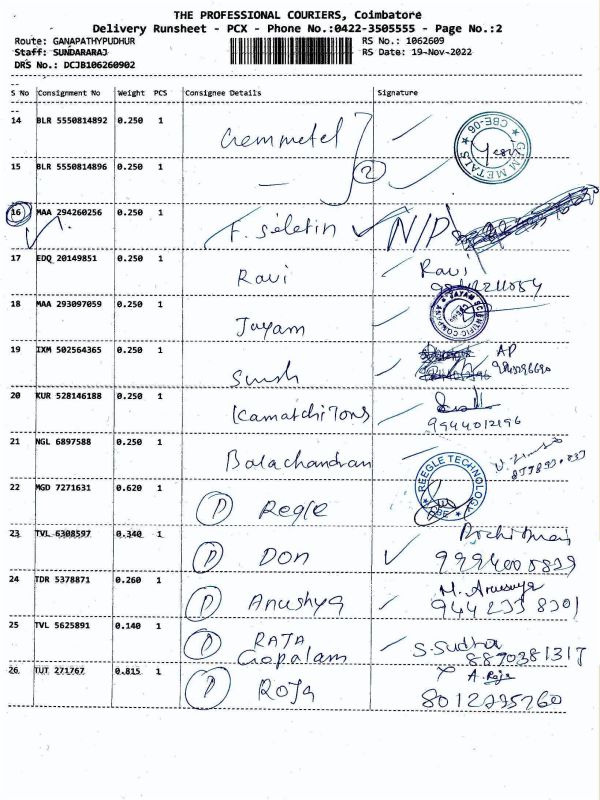 THE PROFESSIONAL COURIERS, Coimbatore
Delivery Runsheet - PCX - Phone No.:0422-3505555 - Page No.:2
Route: GANAPATHYPUDHUR RS No.: 1062609
Staff: SUNDARARAJ RS Date: 19-Nov-2022
DRS No.: DCJB106260902
S No Consignment No Weight PCS Consignee Details Signature
14 BLR 5550814892 0.250 1 Gemmetel
GEM METALS CBE-06
15 BLR 5550814896 0.250 1 — 2
16 MAA 294260256 0.250 1 F. seletin N/P
17 EDQ 20149851 0.250 1 Ravi Ravi
18 MAA 293097059 0.250 1 Jayam
JAYAM SCIENTIFIC COMPANY
19 IXM 502564365 0.250 1 Sunsh AP
20 KUR 528146188 0.250 1 Kamatchi Tons
9944012196
21 NGL 6897588 0.250 1 Balachandran
22 MGD 7271631 0.620 1 D Regle
REEGLE TECHNOLOGY
23 TVL 6308597 0.340 1 D Don
24 TDR 5378871 0.260 1 D Anushya M. Anusuya
25 TVL 5625891 0.140 1 D RAJA S. Sudha
Gopalam 8870381317
26 TUT 271767 0.815 1 D ROJA A. Roja
8012795760